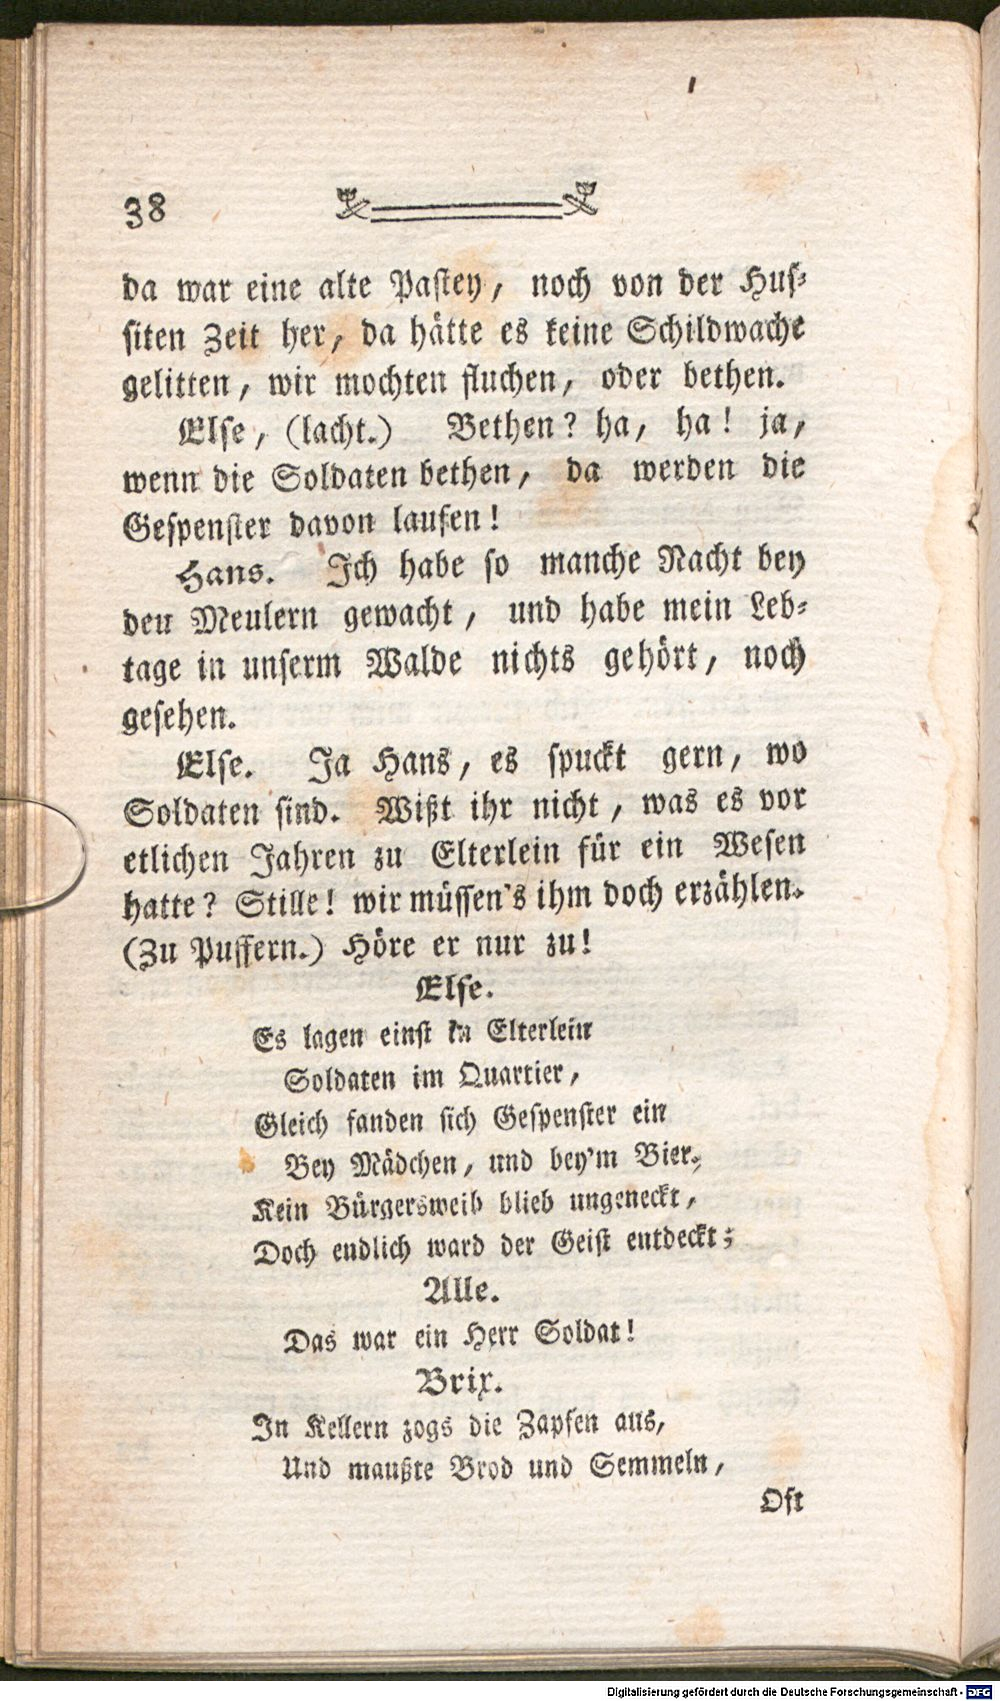 38
da war eine alte Pastey, noch von der Hus-
siten Zeit her, da hätte es keine Schildwache
gelitten, wir mochten fluchen, oder bethen.
Else, (lacht.) Bethen? ha, ha! ja,
wenn die Soldaten bethen, da werden die
Gespenster davon laufen!
Hans. Ich habe so manche Nacht bey
den Meulern gewacht, und habe mein Leb-
tage in unserm Walde nichts gehört, noch
gesehen.
Else. Ja Hans, es spuckt gern, wo
Soldaten sind. Wißt ihr nicht, was es vor
etlichen Jahren zu Elterlein für ein Wesen
hatte? Stille! wir müssen's ihm doch erzählen.
(Zu Puffern.) Höre er nur zu!
Else.
Es lagen einst in Elterlein
Soldaten im Quartier,
Gleich fanden sich Gespenster ein
Bey Mädchen, und bey'm Bier.
Kein Bürgersweib blieb ungeneckt,
Doch endlich ward der Geist entdeckt;
Alle.
Das war ein Herr Soldat!
Brix.
In Kellern zogs die Zapfen aus,
Und maußte Brod und Semmeln,
Oft
Digitalisierung gefördert durch die Deutsche Forschungsgemeinschaft - DFG